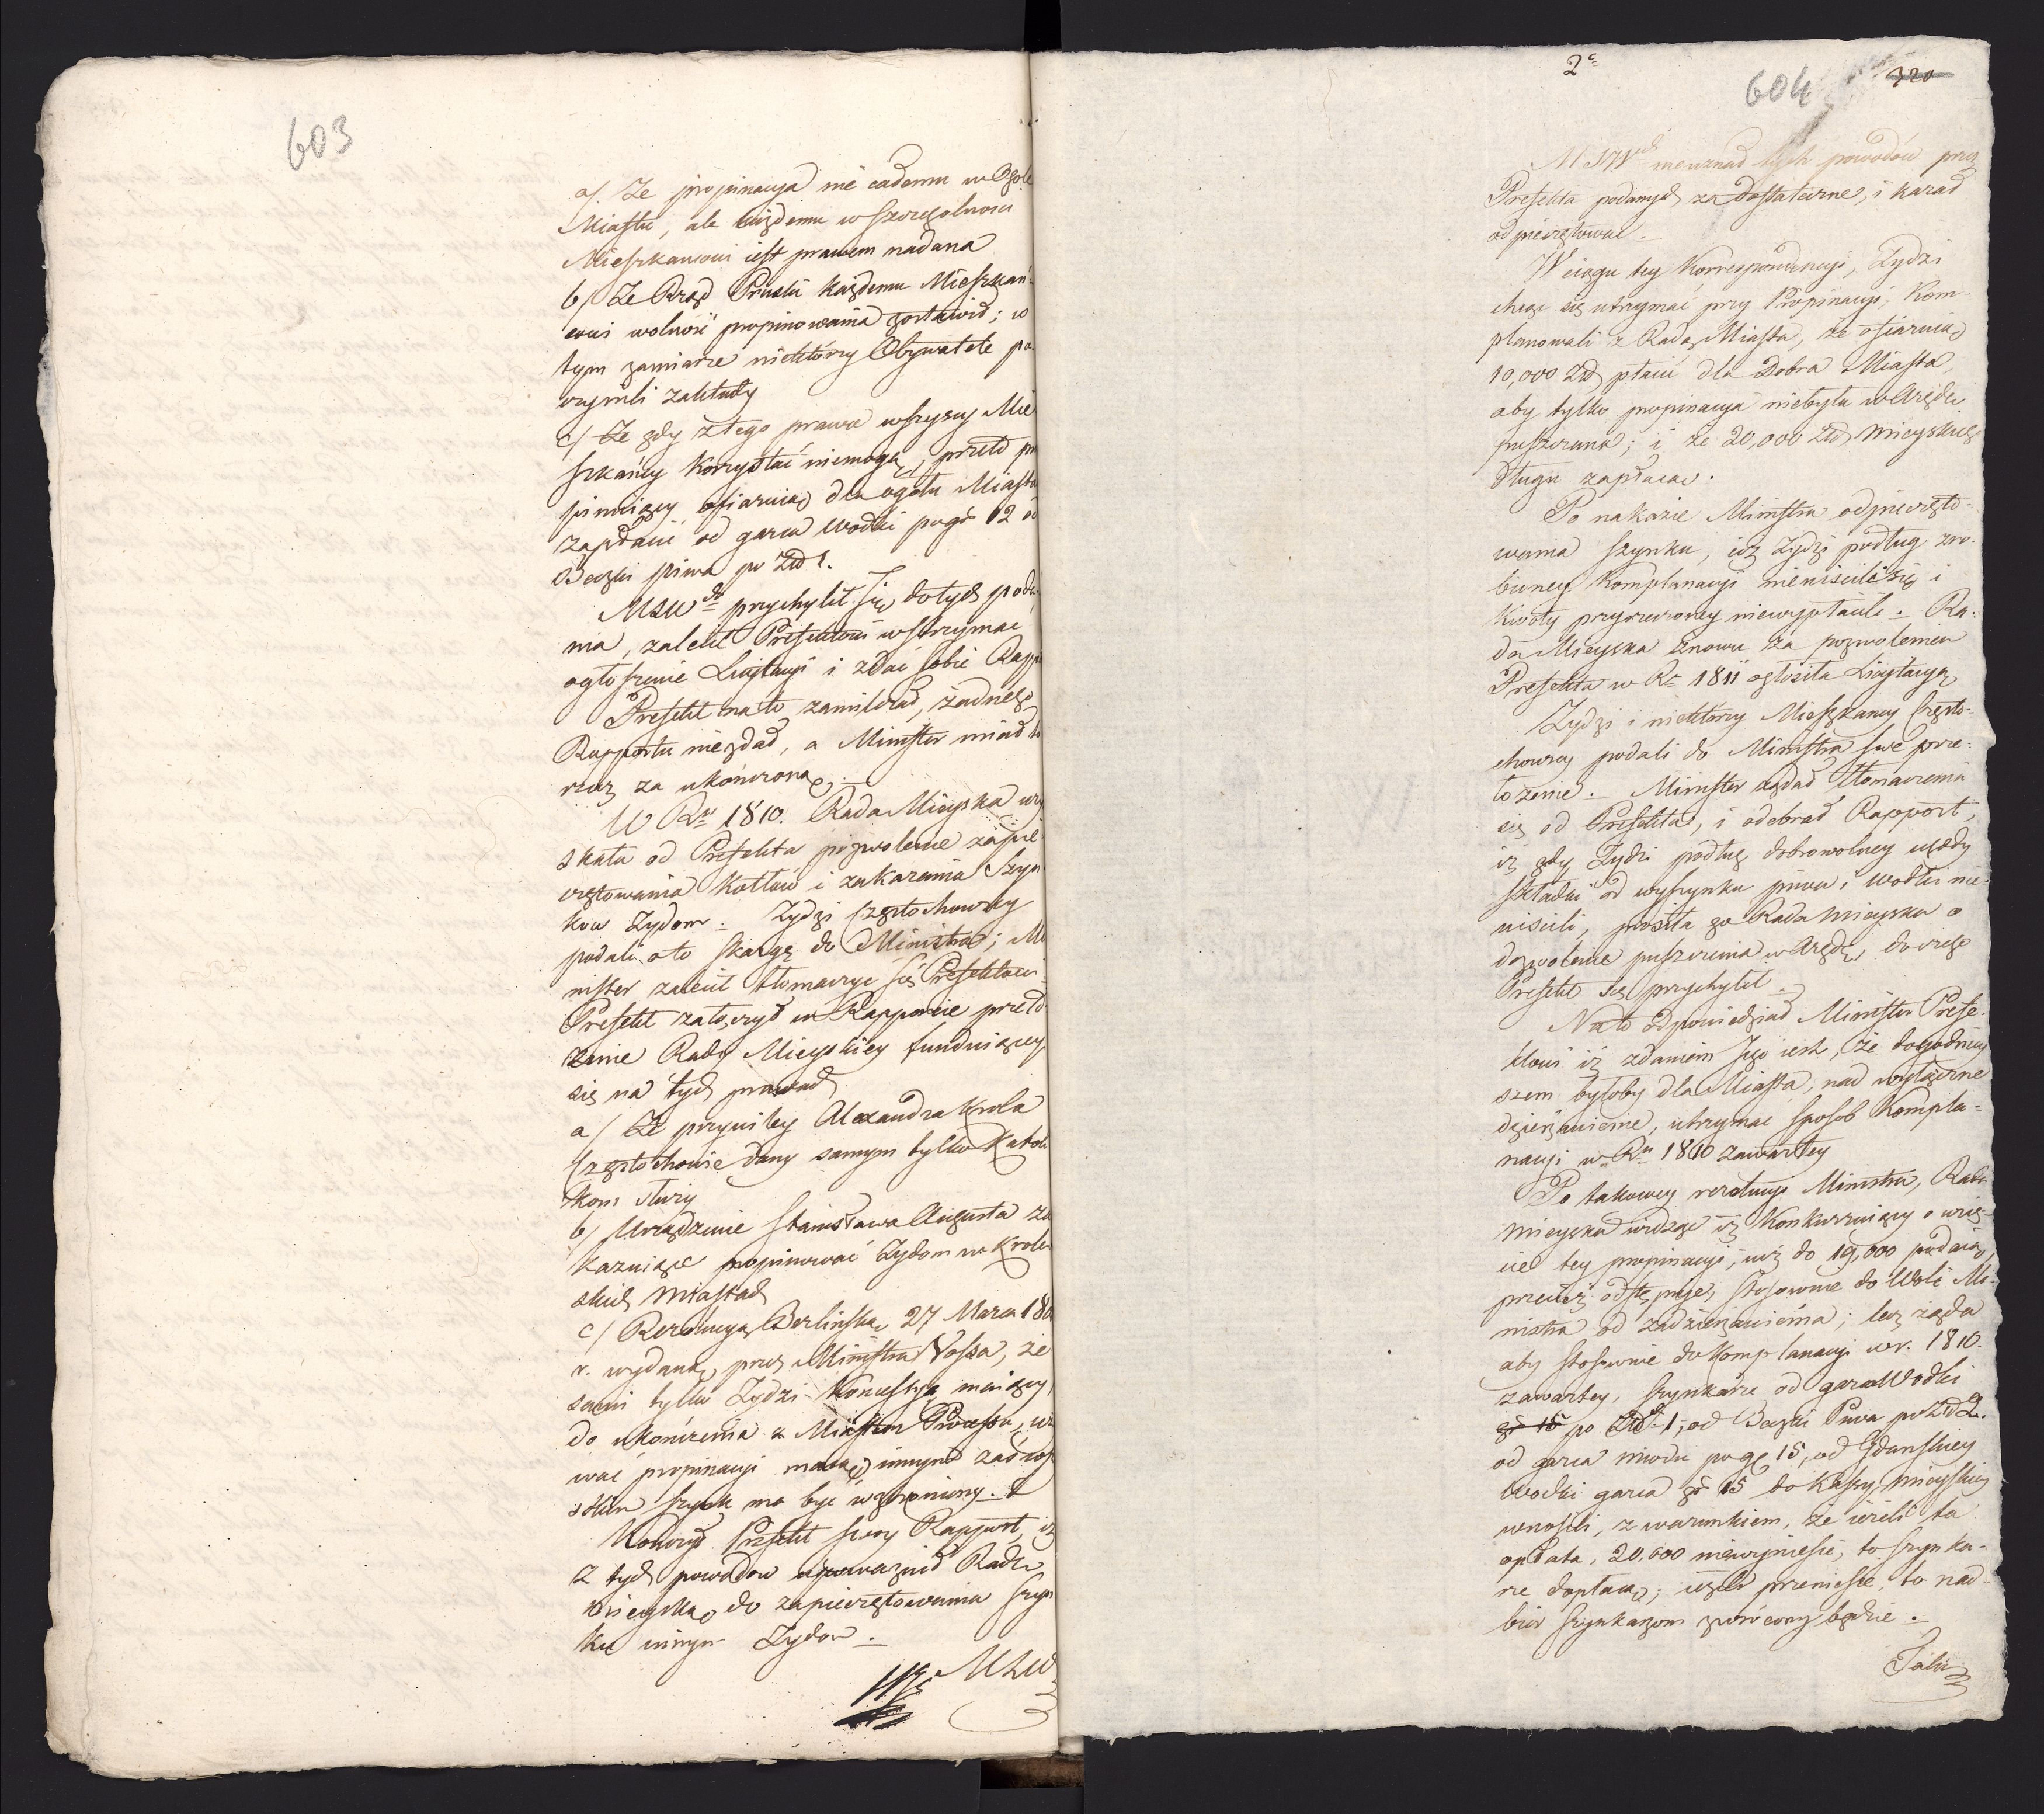 603
a/. Ze propinacya nie całemu w Ogole
Miastu, ale każdemu w szczególności
Mieszkancowi iest prawem nadana
b/ Ze Rząd Pruski każdemu Mieszkań-
cowi wolność propinowania zostawił; w
tym zamiarze niektórzy Obywatele po-
czynili zakłady
c/ Ze gdy z tego prawa wszyscy Mie
szkańcy korzystać niemogą, przeto pro
pinuiący ofiaruią dla ogółu Miasta
zapłacić od garca wodki po gr 12 od
Beczki piwa po Zł 1.
MSW przychylił się do tych poda
nia, zalecił Prefektowi wstrzymać
ogłoszenie Licytacyi i zdać sobie Rapp
Prefekt na to zamilczał, żadnego
Rapportu nie zdał, a Minister miał tę
rzecz za ukończoną.
W Rku 1810. Rada Mieyska uzy
skała od Prefekta pozwolenie zapie
czętowania kotłów i zakazania Szyn
ków Żydom. Żydzi Częstochowscy
podali o to skargę do Ministra; Mi
nister zalecił tłomaczyć się Prefektowi
Prefekt załączył w Rapporcie przeło
żenie Rady Mieyskiey funduiącey
się na tych prawach
a/ Ze przywiley Alexandra Krola
Częstochowie dany samym tylko Katoli
kom służy
b/ Urządzenie Stanisława Augusta za
kazuiące propinować Żydom w Krolew
skich Miastach
c/ Rezolucyą Berlińską 27 Marca 180
r. wydaną przez Ministra Vossa, że
sami tylko Żydzi Koncessyą maiący,
do ukończenia z Miastem Processu, uży
wać propinacyi maią, innym zaś wsz
stkim szynk ma być wzbroniony.
Kończył Prefekt swoy Rapport, iż
z tych powodów upoważnił Radę
Mieyską do zapieczętowania szyn
ku innym Żydom.
MSW
2
604
320
MSW nieuznał tych powodów przez
Prefekta podanych za dostateczne, i kazał
odpieczętować.
W ciągu tey Korrespondencyi, Żydzi
chcąc się utrzymać przy Propinacyi, Kom-
planowali z Radą Miasta, że ofiaruią
10,000 Zł płacić dla Dobra Miasta,
aby tylko propinacya niebyła w Arędę
puszczana; i że 20,000 Zł Mieyskiego
długu zapłacą.
Po nakazie Ministra odpieczęto-
wania szynku, iuż Żydzi podług zro-
bioney Komplanacyi nieuiścili się i
kwoty przyrzeczoney niewypłacili. Ra-
da Mieyska znowu za pozwoleniem
Prefekta w Rr 1811 ogłosiła Licytacyą
Żydzi i niektorzy Mieszkancy Często-
chowscy podali do Ministra swe prze-
łożenie. Minister żądał tłomaczenia
się od Prefekta, i odebrał Rapport,
iż gdy Żydzi podług dobrowolney ugody
składki od wyszynku piwa i wodki nie-
uiścili, prosiła go Rada Mieyska o
dozwolenie puszczenia w Arędę, do czego
Prefekt się przychylił.
Na to odpowiedział Minister Prefe-
ktowi iż zdaniem Jego iest, że dogodniey
szem byłoby dla Miasta, nad wyłączne
dzierżawienie, utrzymać sposob Kompla-
nacyi w Rku 1810 zawartey
Po takowey rezolucyi Ministra, Rada
Mieyska widząc iż Konkurruiący o wzię-
cie tey propinacyi, iuż do 19,000 podaią,
przecież odstępuje stosownie do Woli Mi-
nistra od zadzierżawienia; lecz żąda
aby stosownie do Komplanacyi w r. 1810.
zawartey, szynkarze od garca Wodki
gr 15 po Zł 1, od Beczki Piwa po Zł 2.
od garca miodu po gr 15, od Gdańskiey
Wodki garca gr 15 do Kassy Mieyskiey
wnosili, z warunkiem, że ieżeli ta
opłata, 20,000 niewyniesie, to szynka-
rze dopłacą; ieżeli przeniesie, to nad-
bior szynkarzom zwrócony będzie.